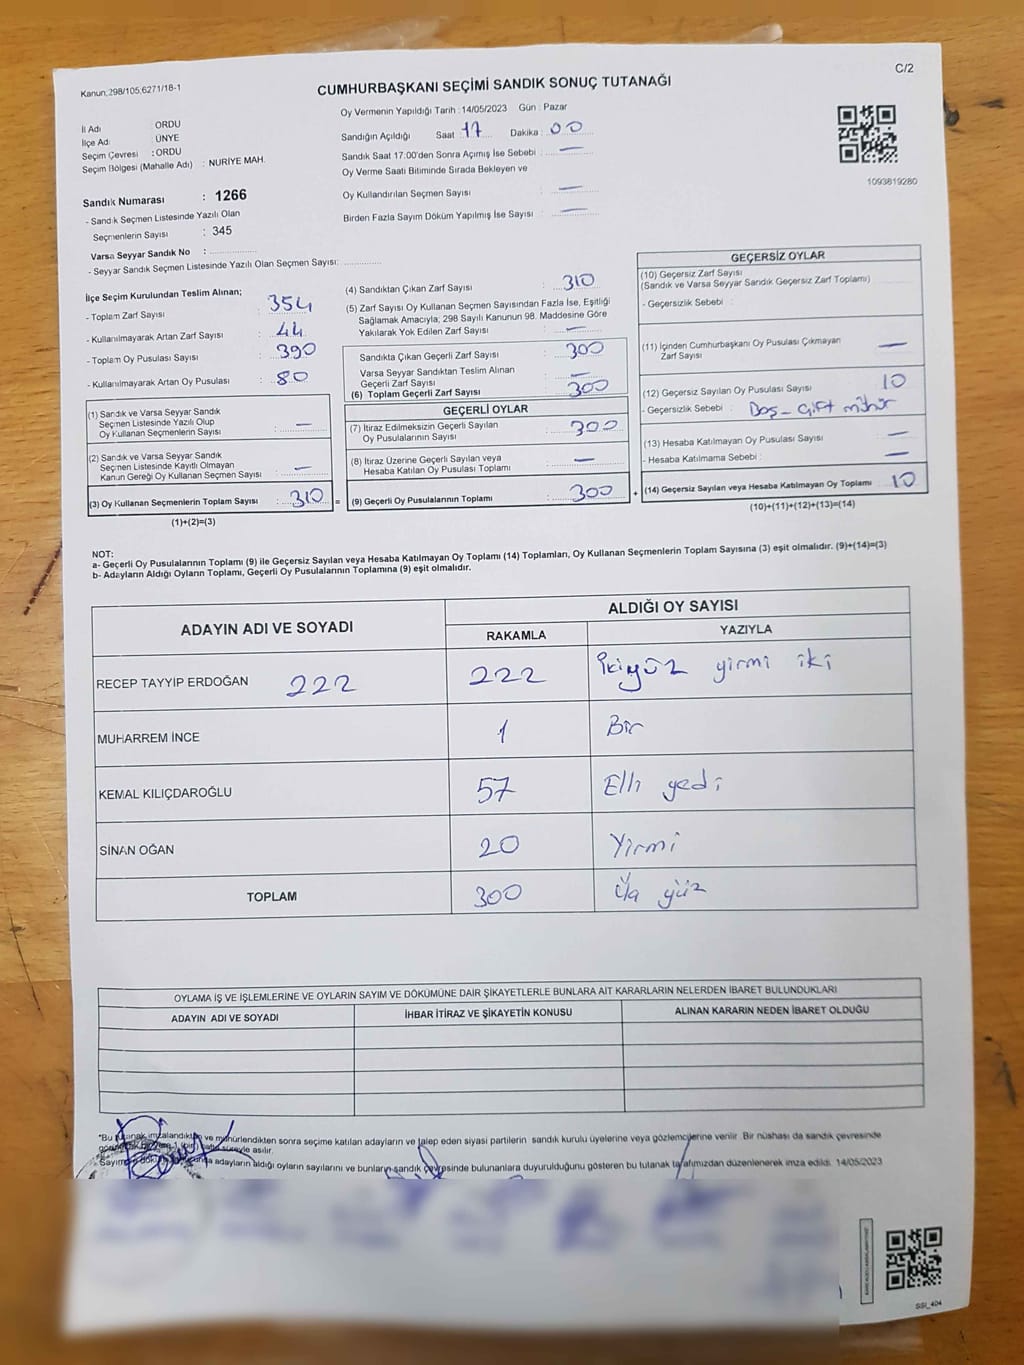 C/2
Kanun, 298/105,6271/18-1
CUMHURBAŞKANI SEÇİMİ SANDIK SONUÇ TUTANAĞI
Oy Vermenin Yapıldığı Tarih : 14/05/2023 Gün : Pazar
İl Adı : ORDU
İlçe Adı : ÜNYE
Seçim Çevresi : ORDU
Seçim Bölgesi (Mahalle Adı) : NURİYE MAH.
Sandığın Açıldığı Saat : 17 Dakika : 00
Sandık Saat 17:00'den Sonra Açımış İse Sebebi : —
Oy Verme Saati Bitiminde Sırada Bekleyen ve
Oy Kullandırılan Seçmen Sayısı : —
Birden Fazla Sayım Döküm Yapılmış İse Sayısı : —
1093819280
Sandık Numarası : 1266
- Sandık Seçmen Listesinde Yazılı Olan
Seçmenlerin Sayısı : 345
Varsa Seyyar Sandık No :
- Seyyar Sandık Seçmen Listesinde Yazılı Olan Seçmen Sayısı:
İlçe Seçim Kurulundan Teslim Alınan;
- Toplam Zarf Sayısı : 354
- Kullanılmayarak Artan Zarf Sayısı : 44
- Toplam Oy Pusulası Sayısı : 390
- Kullanılmayarak Artan Oy Pusulası : 80
(1) Sandık ve Varsa Seyyar Sandık
Seçmen Listesinde Yazılı Olup
Oy Kullanan Seçmenlerin Sayısı : —
(2) Sandık ve Varsa Seyyar Sandık
Seçmen Listesinde Kayıtlı Olmayan
Kanun Gereği Oy Kullanan Seçmen Sayısı : —
(3) Oy Kullanan Seçmenlerin Toplam Sayısı : 310 =
(1)+(2)=(3)
(4) Sandıktan Çıkan Zarf Sayısı : 310
(5) Zarf Sayısı Oy Kullanan Seçmen Sayısından Fazla İse, Eşitliği
Sağlamak Amacıyla, 298 Sayılı Kanunun 98. Maddesine Göre
Yakılarak Yok Edilen Zarf Sayısı : —
Sandıkta Çıkan Geçerli Zarf Sayısı : 300
Varsa Seyyar Sandıktan Teslim Alınan
Geçerli Zarf Sayısı : —
(6) Toplam Geçerli Zarf Sayısı : 300
GEÇERLİ OYLAR
(7) İtiraz Edilmeksizin Geçerli Sayılan
Oy Pusulalarının Sayısı : 300
(8) İtiraz Üzerine Geçerli Sayılan veya
Hesaba Katılan Oy Pusulası Toplamı : —
(9) Geçerli Oy Pusulalarının Toplamı : 300 +
GEÇERSİZ OYLAR
(10) Geçersiz Zarf Sayısı
(Sandık ve Varsa Seyyar Sandık Geçersiz Zarf Toplamı)
- Geçersizlik Sebebi :
(11) İçinden Cumhurbaşkanı Oy Pusulası Çıkmayan
Zarf Sayısı —
(12) Geçersiz Sayılan Oy Pusulası Sayısı 10
- Geçersizlik Sebebi : Boş - Çift mühür
(13) Hesaba Katılmayan Oy Pusulası Sayısı —
- Hesaba Katılmama Sebebi : —
(14) Geçersiz Sayılan veya Hesaba Katılmayan Oy Toplamı 10
(10)+(11)+(12)+(13)=(14)
NOT:
a- Geçerli Oy Pusulalarının Toplamı (9) ile Geçersiz Sayılan veya Hesaba Katılmayan Oy Toplamı (14) Toplamları, Oy Kullanan Seçmenlerin Toplam Sayısına (3) eşit olmalıdır. (9)+(14)=(3)
b- Adayların Aldığı Oyların Toplamı, Geçerli Oy Pusulalarının Toplamına (9) eşit olmalıdır.
ADAYIN ADI VE SOYADI
ALDIĞI OY SAYISI
RAKAMLA YAZIYLA
RECEP TAYYIP ERDOĞAN 222 222 İkiyüz yirmi iki
MUHARREM İNCE 1 Bir
KEMAL KILIÇDAROĞLU 57 Elli yedi
SİNAN OĞAN 20 Yirmi
TOPLAM 300 yüz
OYLAMA İŞ VE İŞLEMLERINE VE OYLARIN SAYIM VE DÖKÜMÜNE DAİR ŞİKAYETLERLE BUNLARA AIT KARARLARIN NELERDEN İBARET BULUNDUKLARI
ADAYIN ADI VE SOYADI İHBAR İTİRAZ VE ŞİKAYETİN KONUSU ALINAN KARARIN NEDEN İBARET OLDUĞU
"Bu tutanak imzalandıktan ve mühürlendikten sonra seçime katılan adayların ve talep eden siyasi partilerin sandık kurulu üyelerine veya gözlemcilerine verilir. Bir nüshası da sandık çevresinde
süreyle asılır.
adayların aldığı oyların sayılarını ve bunların sandık çevresinde bulunanlara duyurulduğunu gösteren bu tutanak tarafımızdan düzenlenerek imza edildi. 14/05/2023
SSI_404